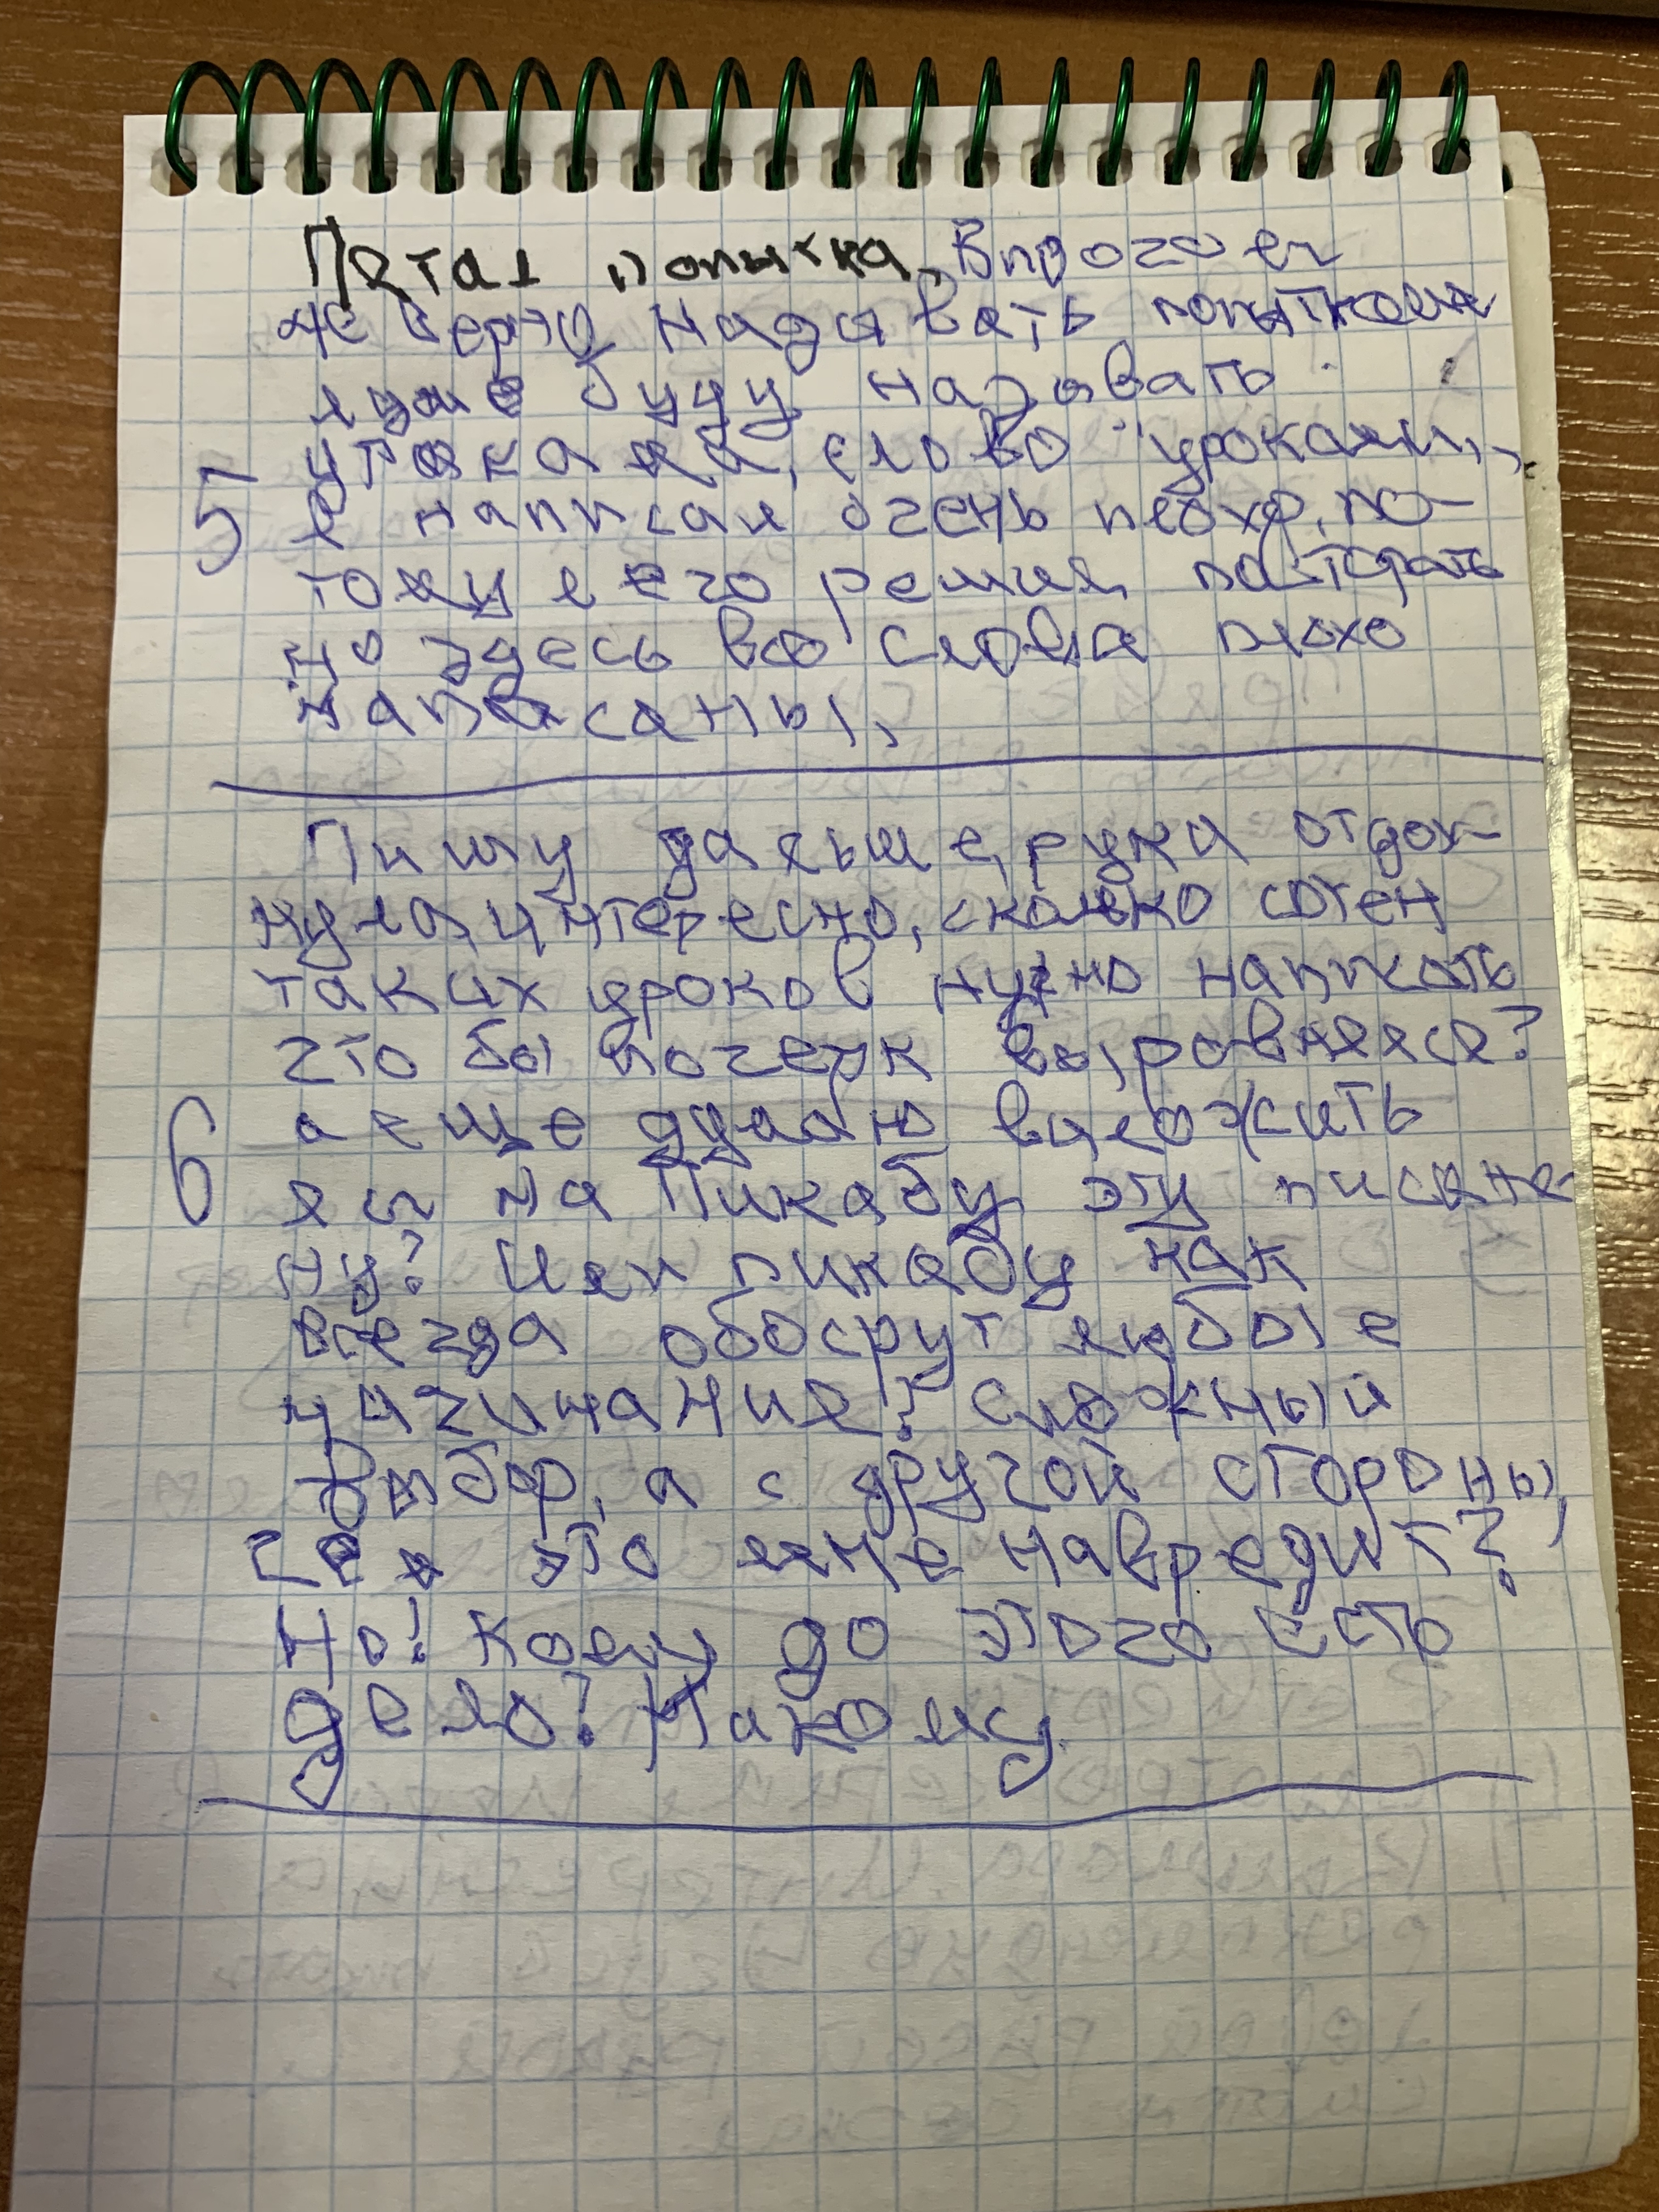 Пятая попытка, Впрочем
не верно называть попытками
лучше буду называть
уроками, слово "уроками"
5 я написал очень плохо, по-
тому я его решил повторять
но здесь все слова плохо
написаны,
Пишу дальше, рука отдох-
нула, интересно, сколько сотен
таких уроков нужно написать
что бы почерк выровнялся?
6 а еще думаю выложить
ли на Пикабу эту писани-
ну? Или пикабу как
всегда обосрут любые
начинания? Сложный
выбор, а с другой стороны,
чем это мне навредит?
Но! Кому до этого есть
дело? Никому.